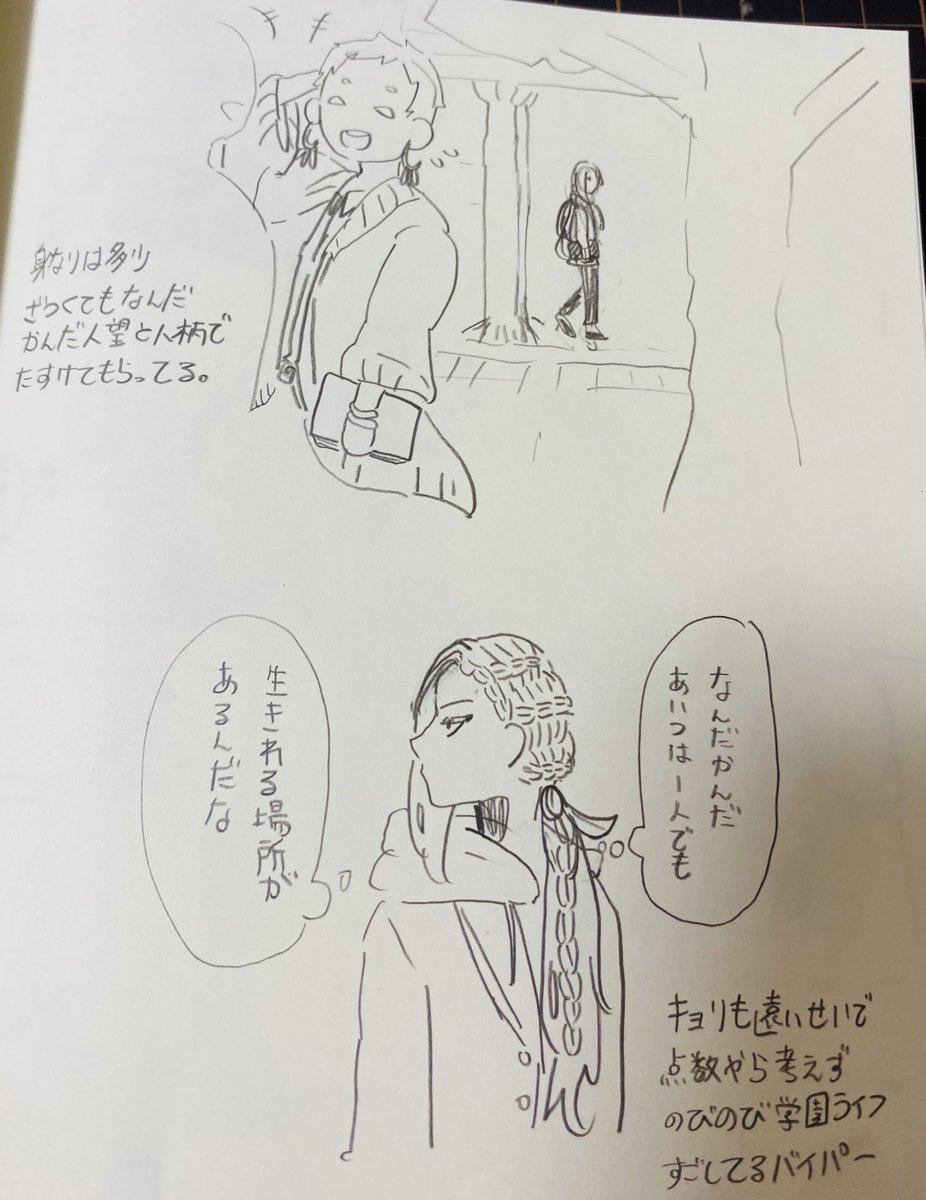 身なりは多少
ざつくてもなんだ
かんだ人望と人柄で
たすけてもらってる。
なんだかんだ
あいつは一人でも
生きれる場所が
あるんだな
キョリも遠いせいで
点数やら考えず
のびのび学園ライフ
すごしてるバイパー